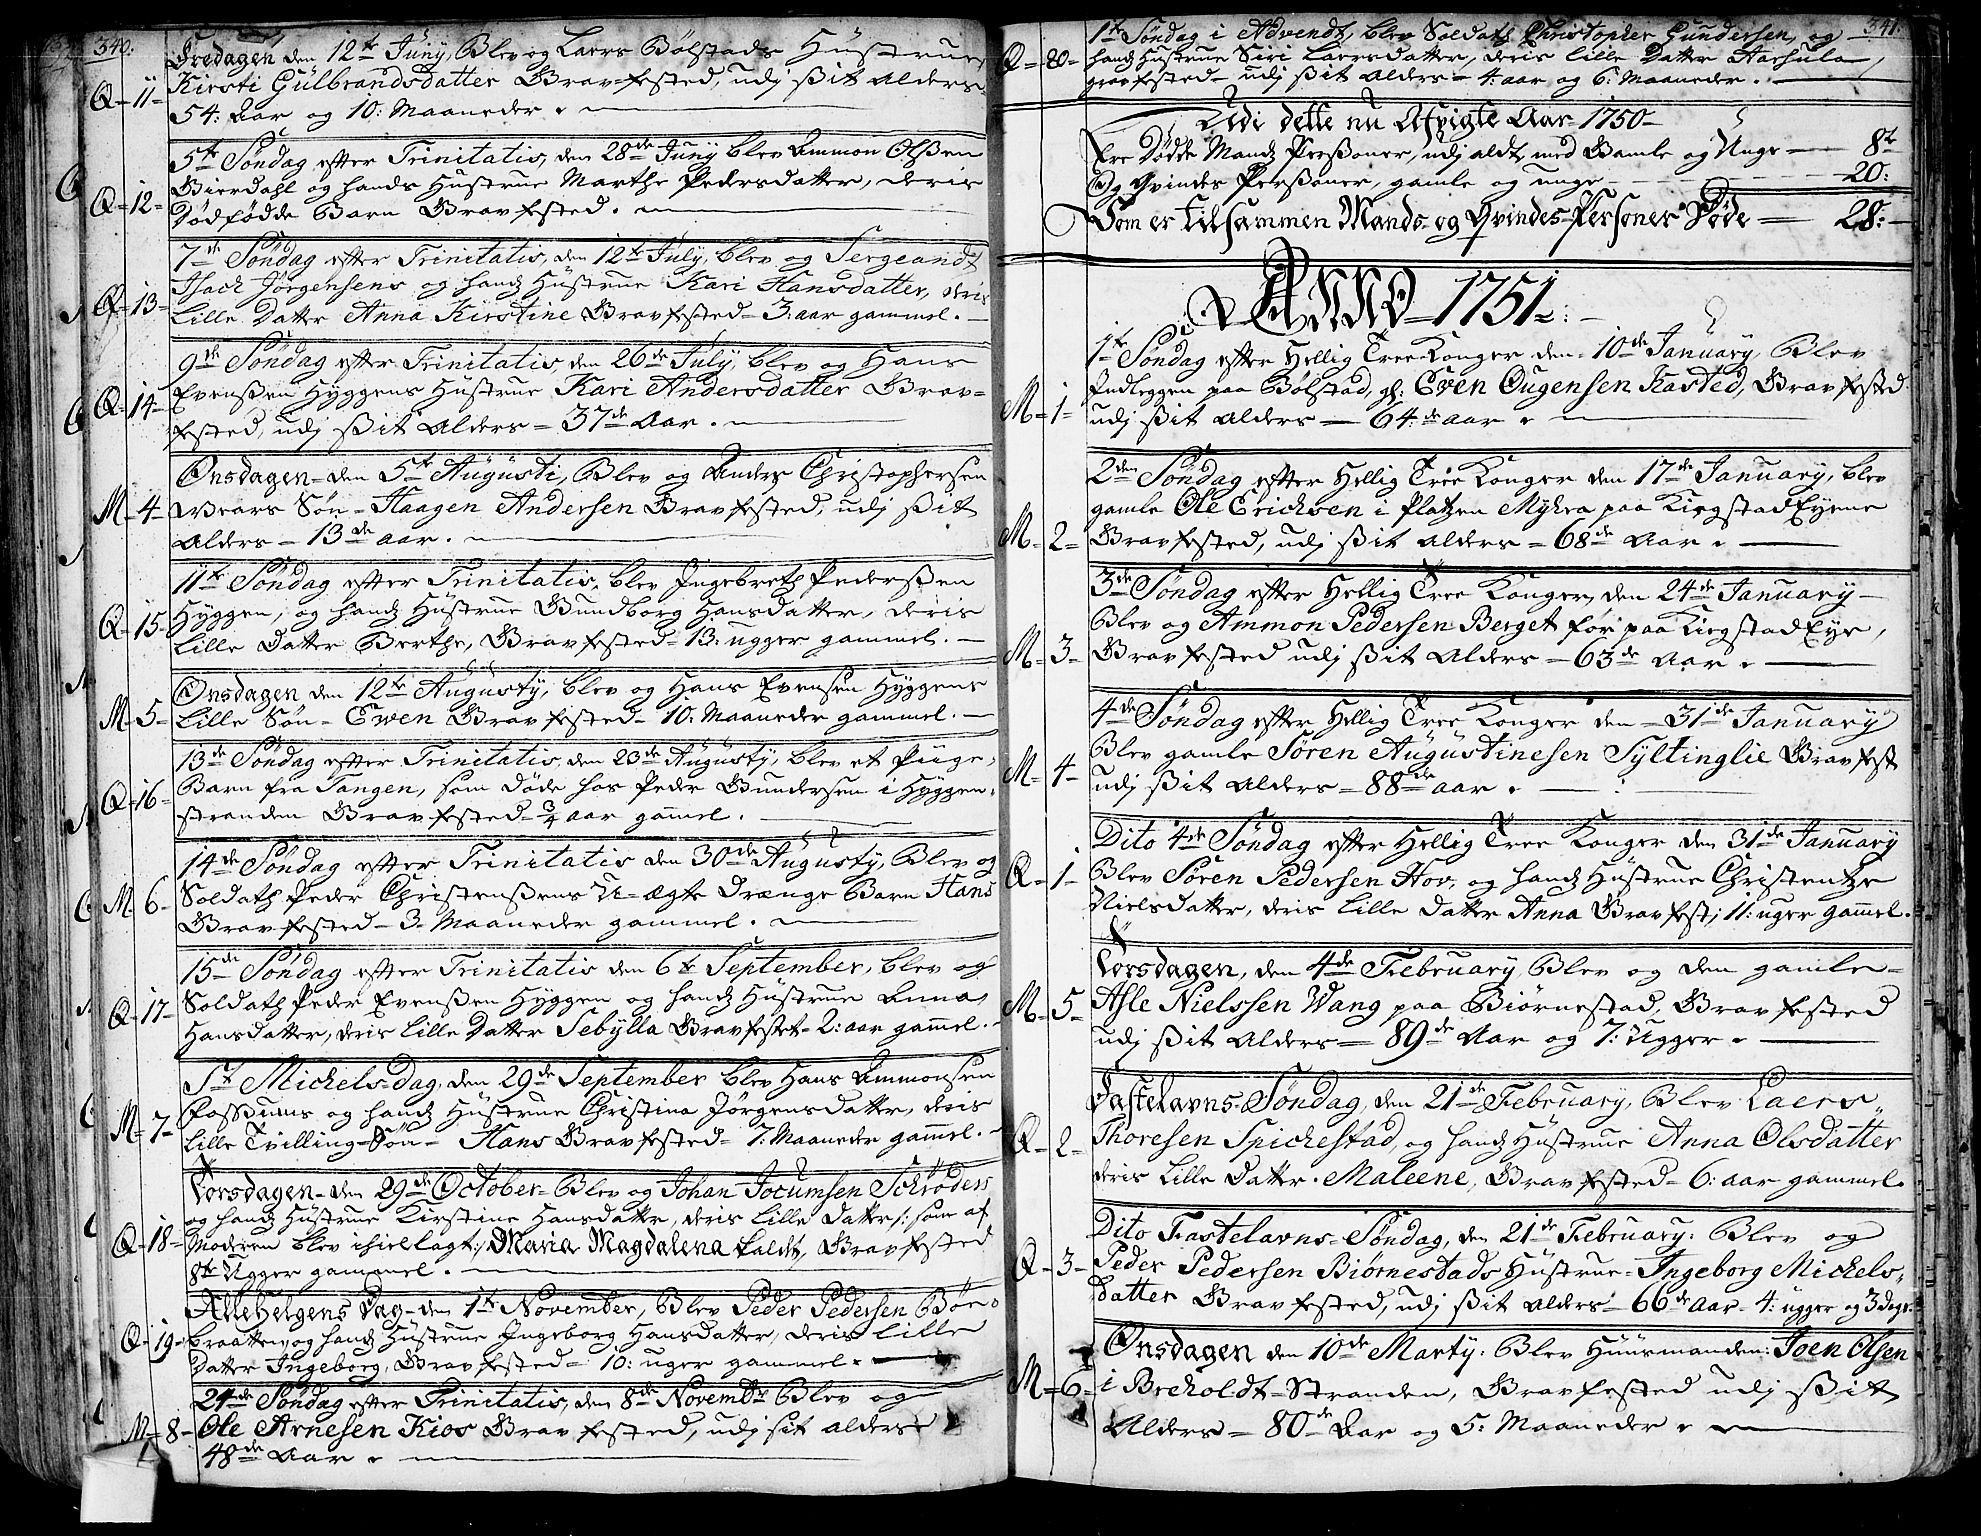 340.
Fredagen den 12te Juny, Blev og Laers Bølstads Hustrue
Q = 11 = Kirsti Gulbrandsdatter Gravfested, udj ßit Alders
54: Aar og 10: Maaneder.
5te Søndag efter Trinitatis, den 28de Juny blev Ammon Olßen
Q = 12 = Bierdahl og hands Hustrue Marthe Pedersdatter, deris
Dødfødde Barn Gravfested.
7de Søndag efter Trinitatis, den 12te July, blev og Sergeandt
Q = 13 = Isach Jørgensens og hands Hustrue Kari Hansdatter, deris
Lille Datter Anna Kirstine Gravfested = 3: aar gammel.
9de Søndag efter Trinitatis, den 26de July, blev og Hans
Q = 14 = Evenßen Hyggens Hustrue Kari Andersdatter Grav=
fested, udj ßit Alders = 37de Aar.
Onsdagen den 5te Augusti, Blev og Anders Christophersen
M = 4 = Wears Søn = Haagen Andersen Gravfested, udj ßit
Alders = 13de aar.
11te Søndag efter Trinitatis, blev Ingebreth Pederßen
Q = 15 = Hyggen, og hands Hustrue Gundborg Hansdatter, deris
Lille Datter Berthe, Gravfested = 13: ugger gammel.
Onsdagen den 12te Augusty, blev og Hans Evensen Hyggens
M = 5 = Lille Søn = Ewen Gravfested = 10: Maaneder gammel.
13de Søndag efter Trinitatis, den 23de Augusty, blev et Piige=
Q = 16 = Barn fra Tangen, som døde hos Peder Gundersen i Hyggen=
stranden Gravfested = 3/4 aar gamel.
14de Søndag efter Trinitatis den 30de Augusty, Blev og
M 6 = Soldath Peder Christenßens U=ægte Drænge Barn Hans
Gravfested = 3 = Maaneder gammel.
15de Søndag efter Trinitatis den 6te September, blev og
Q = 17 = Soldath Peder Evenßen Hyggen og hands Hustrue Anna
Hansdatter, deris Lille Datter Sebylla Gravfestet = 2: aar gamel.
St Michels=Dag, den 29de September blev Hans Ammonsen
M = 7 = Foßums og hands Hustrue Christina Jørgensdatter, deris
Lille Tvilling=Søn = Hans Gravfested = 7: Maaneder gamel.
Torsdagen = den 29de October = Blev og Johan Jocumsen Schrøders
Q = 18 = og hands Hustrue Kirstine Hansdatter, deris Lille Datter /: som af
Moderen blev ihiellagt:/ Maria Magdalena kaldt, Gravfested
8te Ugger gammel.
AlleHelgens Dag = den 1te November, Blev Peder Pedersen Bøn=
Q = 19 = braatten, og hands Hustrue Ingeborg Hansdatter, deris Lille
Datter Ingeborg, Gravfested = 10: uger gammel.
24de Søndag efter Trinitatis, den 8de Novembr Blev og
M = 8 = Ole Arnesen Kios Gravfested, udj sit alders
48de Aar.
341.
1te Søndag i Advendt, blev Soldath Christopher Gundersen, og
Q = 20 = hands Hustrue Siri Laersdatter, deris Lille Datter Aarsula,
gravfested = udj ßit Alders = 4: aar og 6: Maaneder.
Udi dette nu Afvigte Aar 1750
Ere Dødde Mands Perßoner, udj aldt, med Gamle og Unge — 8te
Og Qvindes Perßoner, gamle og unge — 20:
Som er Tilsammen Mands= og Qvindes=Personer Døde — 28:
ANNO 1751.
1te Søndag efter Hellig Tree Konger den = 10de January, Blev
M = 1 = Indleggen paa Bølstad, gl: Even Ougensen Kasted, Gravfested
udj ßit Alders = 64.de aar.
2den Søndag efter Hellig Tree Konger den 17de January, blev
gamle Ole Erichsen i Platzen Myhra paa Kiegstad Eyene
M = 2 = Gravfested, udj ßit Alders = 68de Aar.
3de Søndag efter Hellig Tree Konger, den 24de January
Blev og Ammon Pedersen Berget før paa Kiegstad Eye,
M = 3 = Gravfested udj ßit Alders = 63de Aar.
4de Søndag efter Hellig Tree Konger den = 31de January
Blev gamle Søren Augustinesen Syltinglie Gravfest
M = 4 = udj ßit Alders = 88de aar.
Dito 4de Søndag efter Hellig Tree Konger den 31de January
Q = 1 = Blev Søren Pedersen Hov, og hands Hustrue Christentze
Nielsdatter, deris Lille Datter Anna Gravfest; 11: uger gamel.
Torsdagen, den 4de February Blev og den gamle
M = 5 = Asle Nielssen Wang paa Biørnestad, Gravfested
udj ßit Alders = 89de Aar og 7: Ugger.
Fastelavns=Søndag, den 21de February, Blev Laers
Q = 2 = Thoresen Spichestad, og hands Hustrue Anna Olsdatter
deris Lille Datter. Maleene, Gravfested = 6: aar gammel.
Dito Fastelavns=Søndag, den 21de February. Blev og
Q = 3 = Peder Pedersen Biørnestads Hustrue = Ingeborg Michels=
datter Gravfested, udj ßit Alders = 66de Aar = 4: ugger og 3 dage.
Onsdagen den 10de Marty. Blev Huusmanden: Joen Olsen
M = 6 = i Breholdt=Stranden, Gravfested udj ßit
Alders = 80de Aar og 5: Maaneder.